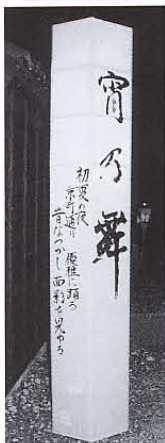 宵乃舞
初夏の夜
京町通り 優雅に踊る
昔なつかし 面影を見ゆる